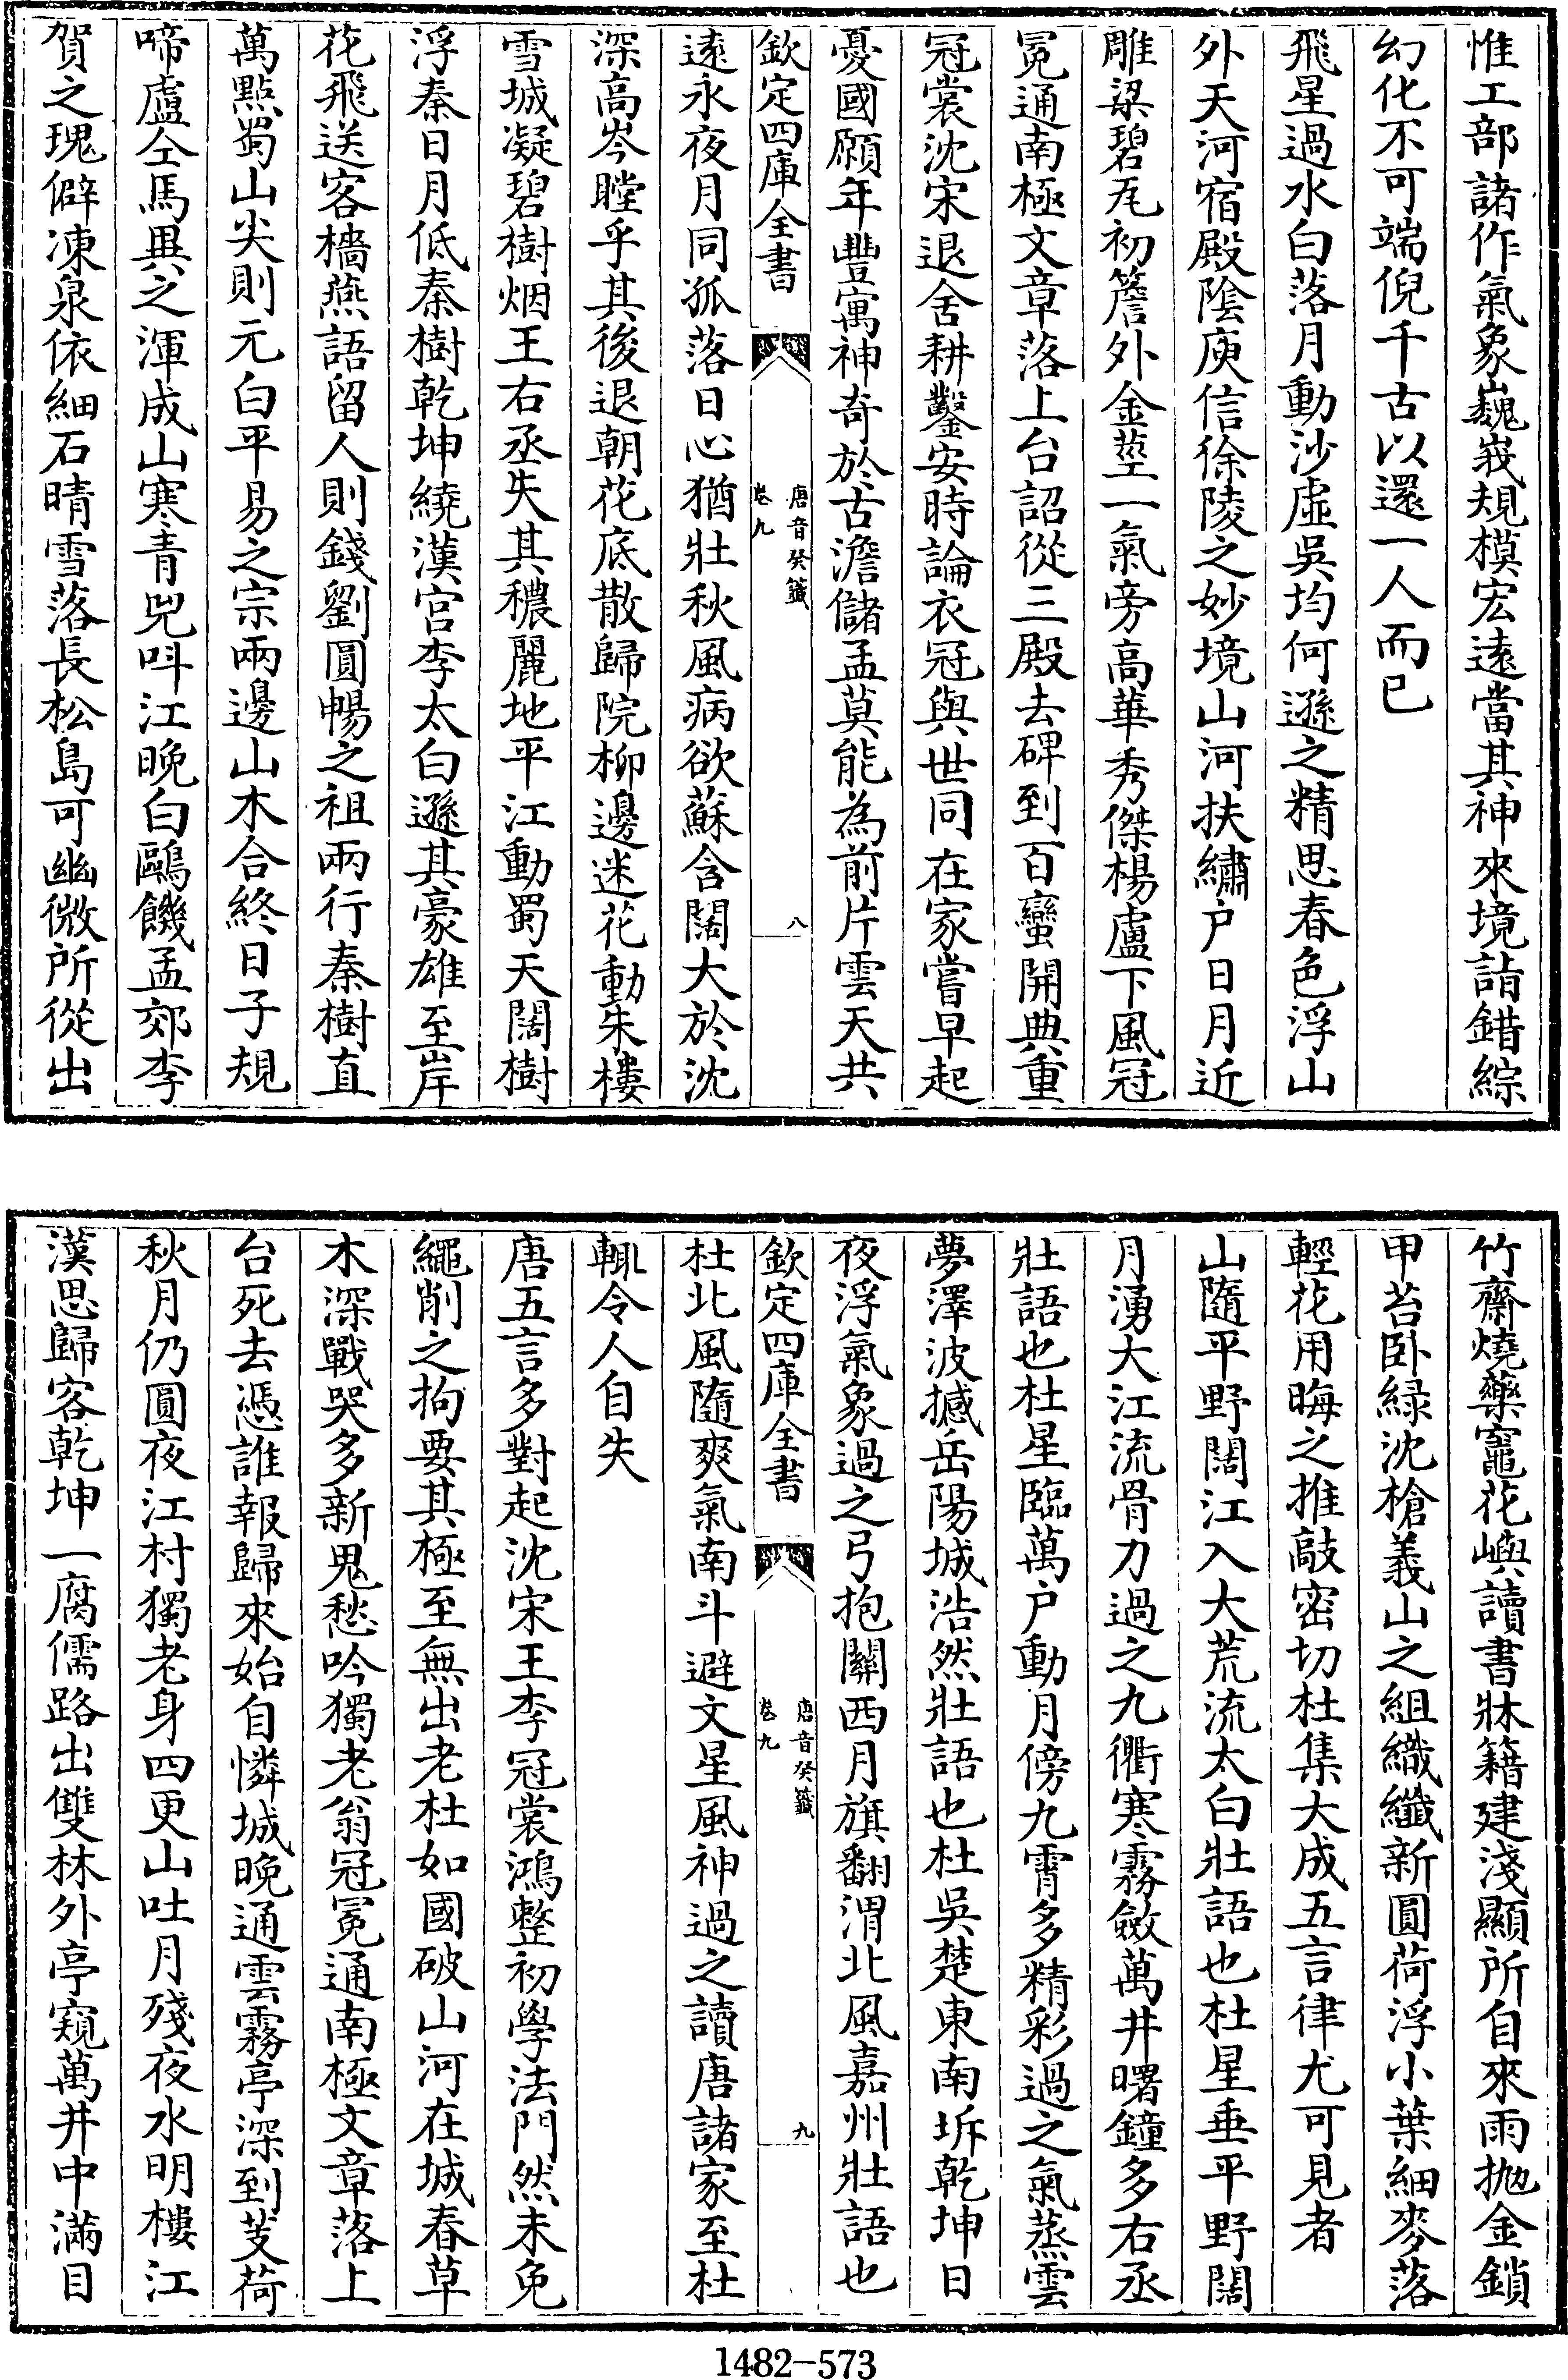 惟工部諸作氣象巍峩規模宏逺當其神來境詣錯綜
幻化不可端倪千古以還一人而已
飛星過水白落月動沙虛吳均何遜之精思春色浮山
外天河宿殿陰庾信徐陵之妙境山河扶繡户日月近
雕梁碧瓦初簷外金莖一氣旁高華秀傑楊盧下風冠
冕通南極文章落上台詔從三殿去碑到百蠻開典重
冠裳沈宋退舍耕鑿安時論衣冠與世同在家嘗早起
憂國願年豐寓神奇於古澹儲孟莫能為前片雲天共
欽定四庫全書
唐音癸籤
卷九
八
逺永夜月同孤落日心猶壯秋風病欲蘇含闊大於沈
深高岑瞠乎其後退朝花底散歸院柳邊迷花動朱樓
雪城凝碧樹烟王右丞失其穠麗地平江動蜀天闊樹
浮秦日月低秦樹乾坤繞漢宫李太白遜其豪雄至岸
花飛送客檣燕語留人則錢劉圓暢之祖兩行秦樹直
萬點蜀山尖則元白平易之宗兩邊山木合終日子規
啼盧仝馬異之渾成山寒青兕呌江晚白鷗饑孟郊李
賀之瑰僻凍泉依細石晴雪落長松島可幽微所從出
竹齋燒藥竈花嶼讀書牀籍建淺顯所自來雨抛金鎖
甲苔卧緑沈槍義山之組織纖新圓荷浮小葉細麥落
輕花用晦之推敲密切杜集大成五言律尤可見者
山隨平野闊江入大荒流太白壯語也杜星垂平野闊
月湧大江流骨力過之九衢寒霧斂萬井曙鐘多右丞
壯語也杜星臨萬户動月傍九霄多精彩過之氣蒸雲
夢澤波撼岳陽城浩然壯語也杜吳楚東南坼乾坤日
夜浮氣象過之弓抱關西月旗翻渭北風嘉州壯語也
欽定四庫全書
唐音癸籤
卷九
九
杜北風隨爽氣南斗避文星風神過之讀唐諸家至杜
輒令人自失
唐五言多對起沈宋王李冠裳鴻整初學法門然未免
繩削之拘要其極至無出老杜如國破山河在城春草
木深戰哭多新鬼愁吟獨老翁冠冕通南極文章落上
台死去憑誰報歸來始自憐城晚通雲霧亭深到芰荷
秋月仍圓夜江村獨老身四更山吐月殘夜水明樓江
漢思歸客乾坤一腐儒路出雙林外亭窺萬井中滿目
1482-573